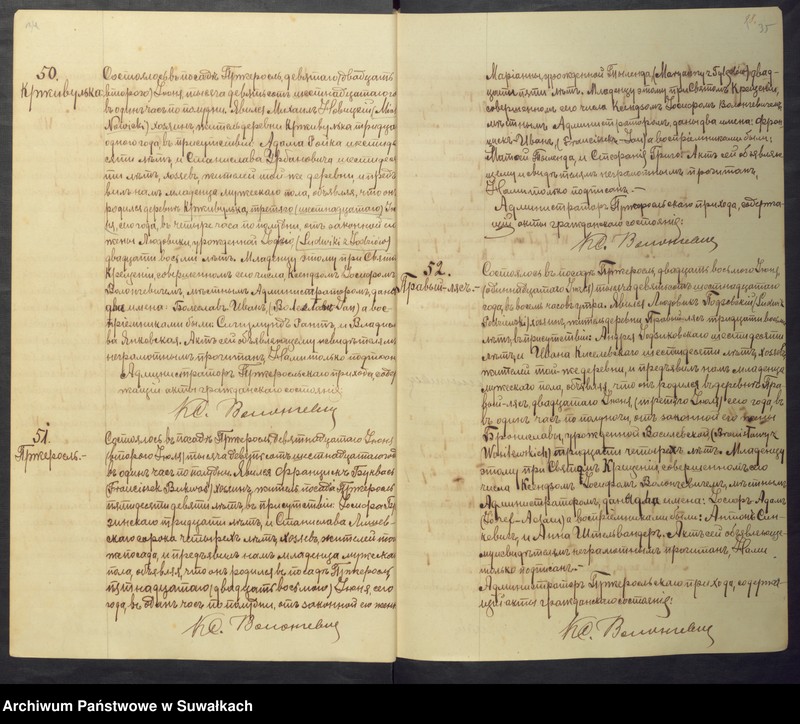 50.
Крживулька
Состоялось въ посадѣ Пржеросль, девятаго (двадцать
втораго) Іюня тысяча девятьсотъ шестнадцатаго года
въ одинъ часъ по полудни. Явился Михаилъ Новицкій (Mi
хозяинъ житель деревни Крживулька тридца
одного года въ присутствіи Адама шестиде
сяти лѣтъ и Станислава Урбановича шестиде
ти лѣтъ, хозяевъ, жителей той же деревни и предъ
вилъ намъ младенца мужескаго пола, объявляя, что он
родился деревнѣ Крживулька, третьяго (шестнадцатаго) Ію
сего года въ четыре часа по полудни, отъ законной его
жены Людовики, урожденной (Ludwiki z
двадцати восьми лѣтъ. Младенцу этому при Свято
Крещеніи, совершенномъ сего числа, Ксендзомъ Іосифомъ
Волончевичемъ, мѣстнымъ Администраторомъ, дано
два имена: Болеславъ Иванъ, (Bolesław Jan) а вос
пріемниками были Сигизмундъ и Владисла
ва Янковская. Актъ сей объявляющему и свидѣтелямъ
неграмотнымъ прочитанъ, Нами только подписанъ
Администраторъ Пржеросльскаго прихода, содер
жащій акты гражданскаго состоянія:
КС. Волончевичъ
51.
Пржеросль.-
Состоялось въ посадѣ Пржеросль, девятнадцатаго Іюня
(второго Іюля) тысяча девятьсотъ шестнадцатаго года
въ одинъ часъ по полудни. Явился Францишекъ Буквасъ
(Franciszek Bukwas) хозяинъ, житель посада Пржеросль
пятидесяти девяти лѣтъ, въ присутствіи: Іосифа
тридцати лѣтъ, и Станислава
скаго сорока четырехъ лѣтъ, хозяевъ, жителей то
же посада, и предъявилъ намъ младенца мужеска
пола, объявляя, что онъ родился въ посадѣ Пржеросль
пятнадцатаго (двадцать восьмого) Іюня, сего
года, въ одинъ часъ по полудни, отъ законной его жены
КС. Волончевичъ
35
Маріанны, урожденной
цати пяти лѣтъ. Младенцу этому при Святомъ Крещеніи,
совершенномъ сего числа Ксендзомъ Іосифомъ Волончевичемъ,
мѣстнымъ Администраторомъ, даны два имена: Фран
цискъ Иванъ, (Franciszek-Jan) а воспріемниками были:
Матвѣй и Стефанія Актъ сей объявляю
щему и свидѣтелямъ неграмотнымъ прочитанъ,
Нами только подписанъ.-
Администраторъ Пржеросльскаго прихода, содержа-
щій акты гражданскаго состоянія:
КС. Волончевичъ
52.
Правый-лясъ.-
Состоялось въ посадѣ Пржеросль, двадцать восьмого Іюня
Іюля) тысяча девятьсотъ шестнадцатаго
года, въ восемь часовъ утра. Явился Людовикъ
хозяинъ, житель деревни Правый-лясъ тридцати восьми
лѣтъ, въ присутствіи: Андрея шестидесяти
лѣтъ, и Ивана Киселевскаго шестидесяти лѣтъ, хозяевъ
жителей той-же деревни, и предъявилъ намъ младенца
мужескаго пола, объявляя, что онъ родился въ деревнѣ Пра-
вый-лясъ, двадцатаго Іюня (третьяго Іюля) сего года, въ
въ одинъ часъ по полуночи, отъ законной его жены
Брониславы, урожденной Василевской (Bronisławy z
Wasilewskich) тридцати четырехъ лѣтъ. Младенцу
этому при Святомъ Крещеніи совершенномъ сего
числа Ксендзомъ Іосифомъ Волончевичемъ, мѣстнымъ
Администраторомъ, даны два имена: Іосифъ Адамъ
(Józef-Adam) а воспріемниками были: Антонъ Син-
кевичъ, и Анна Актъ сей объявляюще-
му и свидѣтелямъ неграмотнымъ прочитанъ, Нами
только подписанъ.-
Администраторъ Пржеросльскаго прихода, содержа-
щій акты гражданскаго состоянія:
КС. Волончевичъ
Archiwum Państwowe w Suwałkach